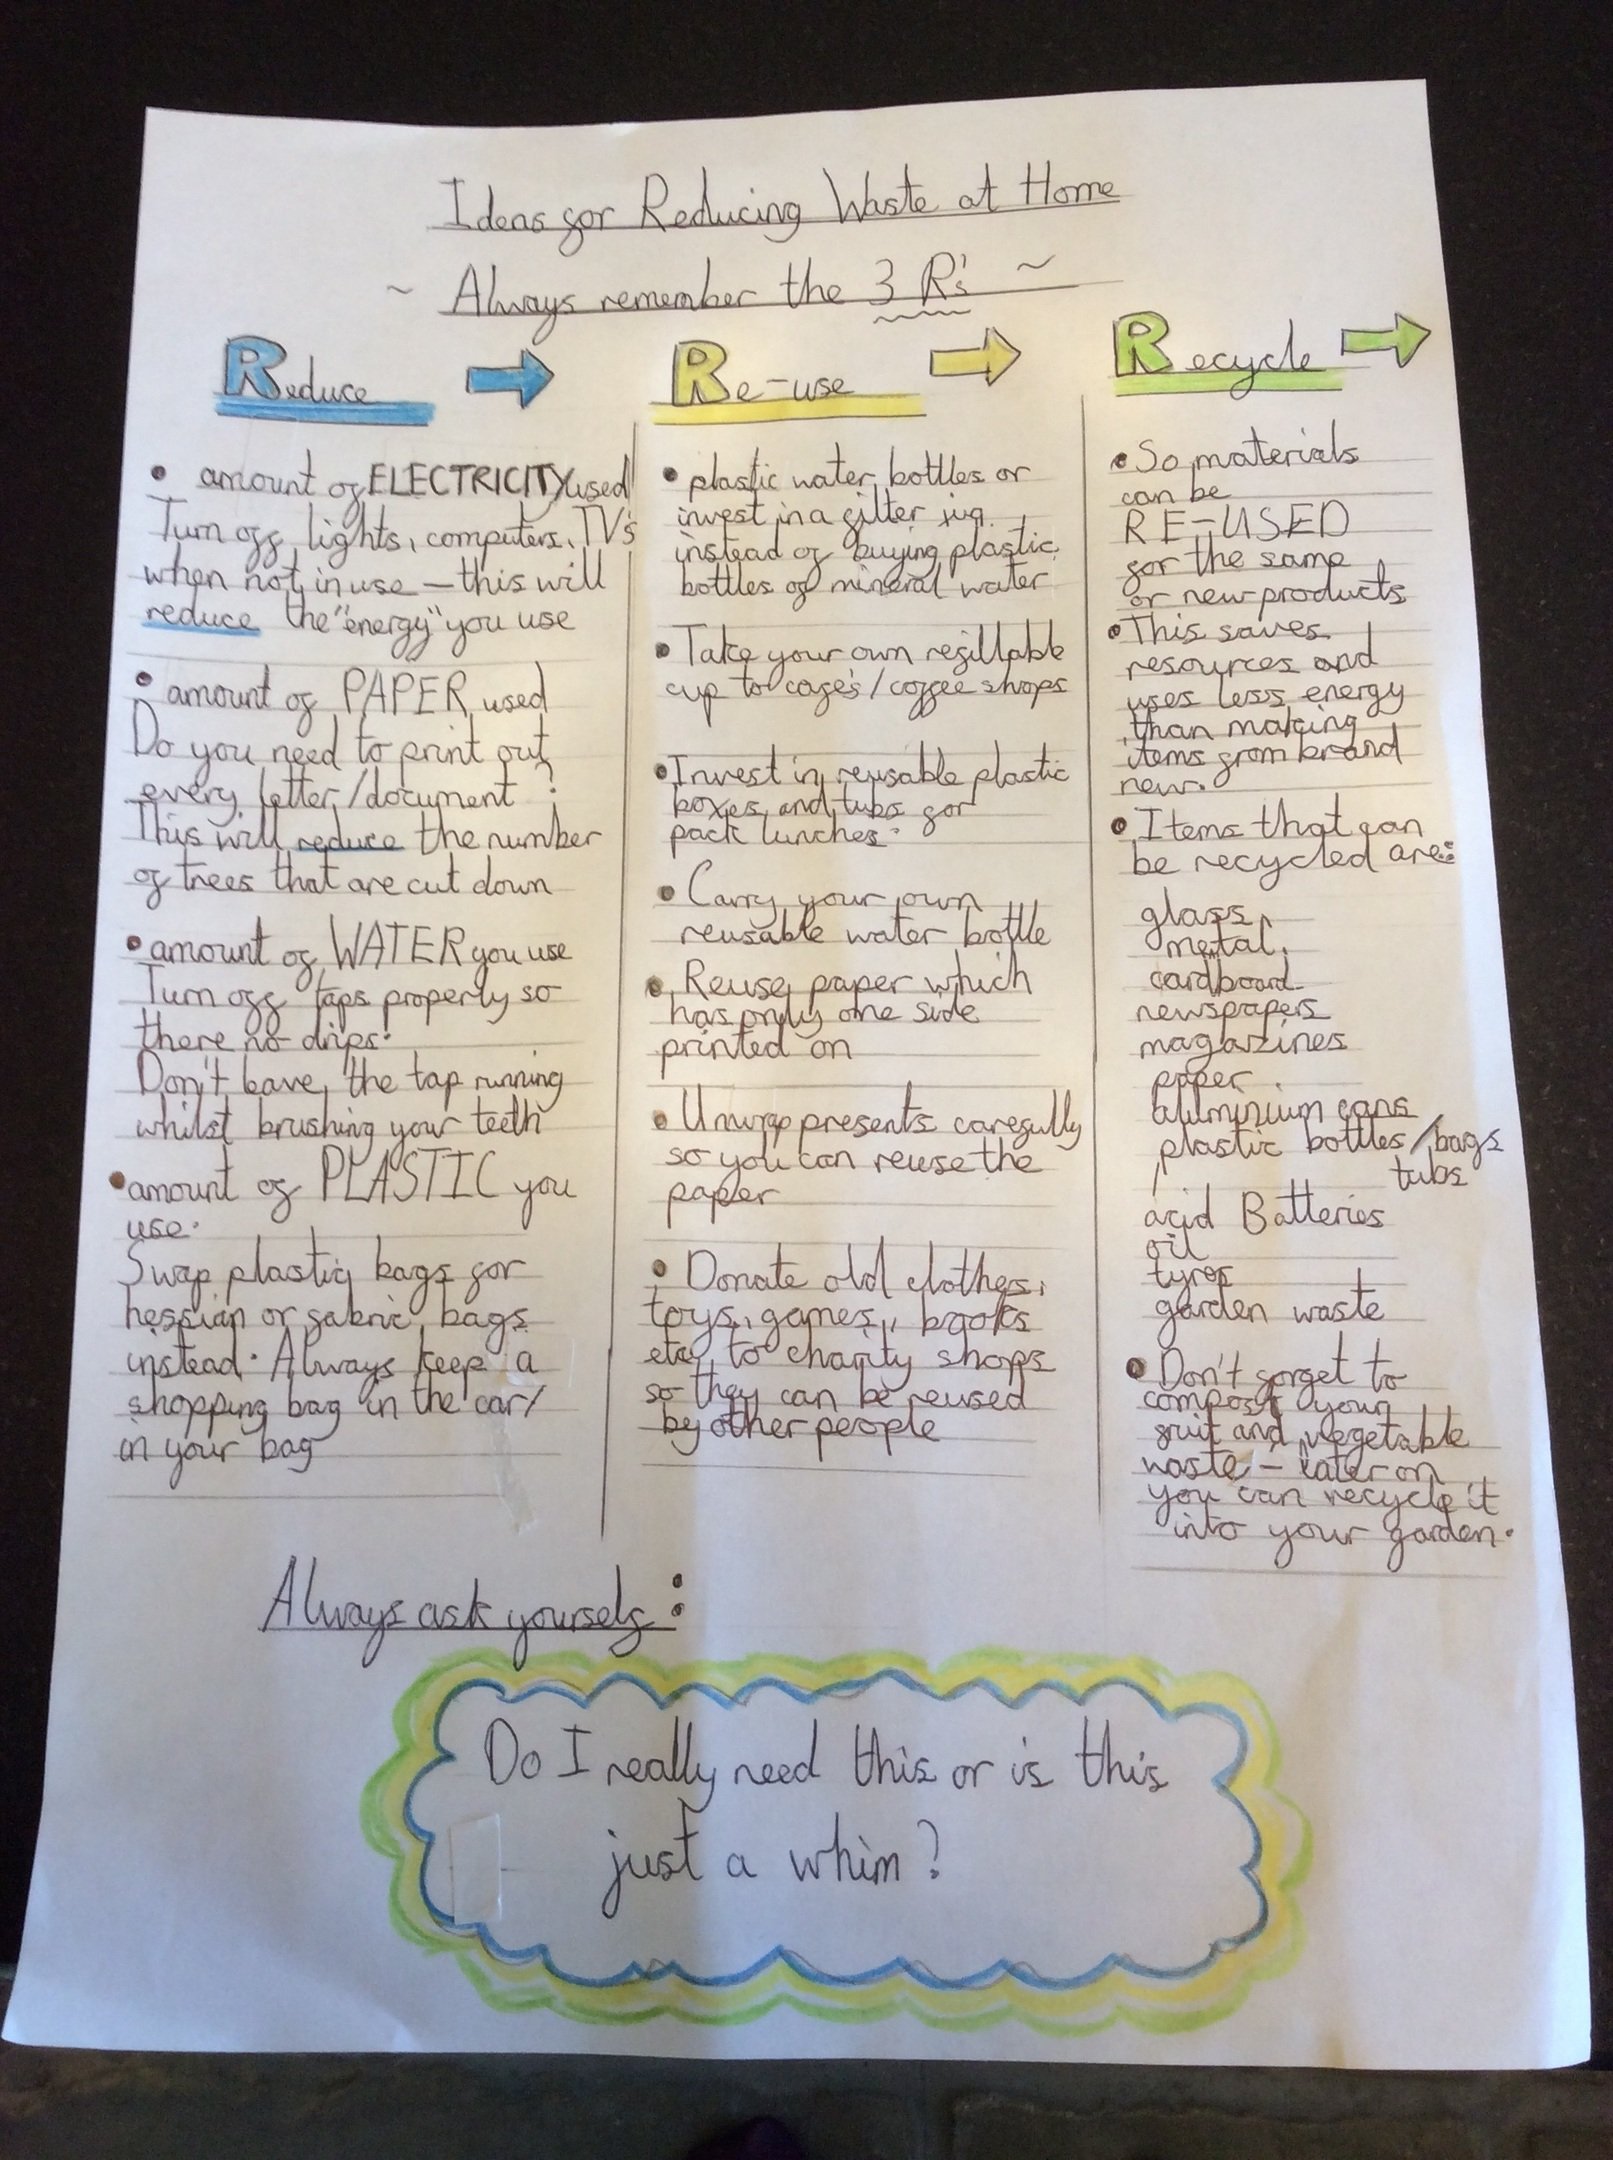 Ideas for Reducing Waste at Home
~ Always remember the 3 R's ~
Reduce
• amount of ELECTRICITY used
Turn off lights, computers, TV's
when not in use – this will
reduce the "energy" you use
• amount of PAPER used
Do you need to print out
every letter/document?
This will reduce the number
of trees that are cut down
• amount of WATER you use
Turn off taps properly so
there no drips.
Don't leave the tap running
whilst brushing your teeth
• amount of PLASTIC you
use.
Swap plastic bags for
hessian or fabric bags
instead. Always keep a
shopping bag in the car/
in your bag
Re-use
• plastic water bottles or
invest in a filter jug
instead of buying plastic
bottles of mineral water
• Take your own refillable
cup to cafe's/coffee shops
• Invest in reusable plastic
boxes and tubs for
pack lunches.
• Carry your own
reusable water bottle
• Reuse paper which
has only one side
printed on
• Unwrap presents carefully
so you can reuse the
paper
• Donate old clothes,
toys, games, books
etc, to charity shops
so they can be reused
by other people
Recycle
• So materials
can be
RE-USED
for the same
or new products
• This saves
resources and
uses less energy
than making
items from brand
new.
• Items that can
be recycled are:
glass,
metal,
cardboard
newspapers
magazines
paper
aluminium cans
plastic bottles/bags
tubs
acid Batteries
oil
tyres
garden waste
• Don't forget to
compost your
fruit and vegetable
waste – later on
you can recycle it
into your garden.
Always ask yourself:
Do I really need this or is this
just a whim?